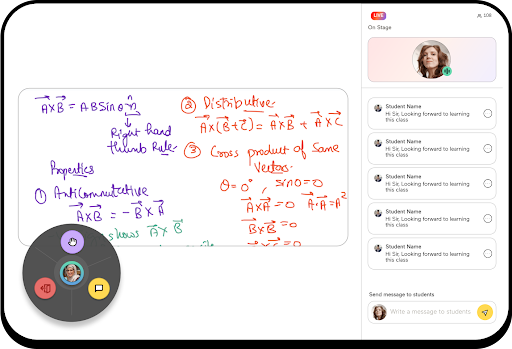 A⃗×B⃗ = ABSinθ n̂
Right hand
thumb Rule.
Properties
① Anticommutative
A⃗×B⃗ = -B⃗×A⃗
shows A⃗×B⃗
② Distributive
A⃗×(B⃗+C⃗) = A⃗×B⃗ + A⃗×C⃗
③ Cross product of Same
Vectors.
θ=0°, sinθ=0
A⃗×A⃗=0 A⃗·A⃗=A²
B⃗×B⃗=0
LIVE
106
On Stage
Student Name
Hi Sir, Looking forward to learning
this class
Student Name
Hi Sir, Looking forward to learning
this class
Student Name
Hi Sir, Looking forward to learning
this class
Student Name
Hi Sir, Looking forward to learning
this class
Student Name
Hi Sir, Looking forward to learning
this class
Send message to students
Write a message to students